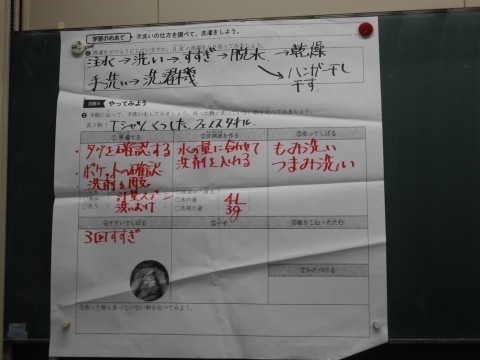 学習のめあて 手洗いの仕方を調べて、洗濯をしよう。
注水→洗い→すすぎ→脱水→乾燥
手洗い→洗濯機
ハンガー干し
干す
やってみよう
Tシャツ、くつした、フェイスタオル
①準備する
・タグを確認する
・ポケットの確認
洗剤を用意
計量スプーン
洗いおけ
水の量に合わせて
洗剤を入れる
○水の量 4L
○洗剤の量 3g
③洗ってしぼる
もみ洗い
つまみ洗い
④すすいでしぼる
3回すすぎ
⑤干す
⑥取りこむ・たたむ
⑦かたづける